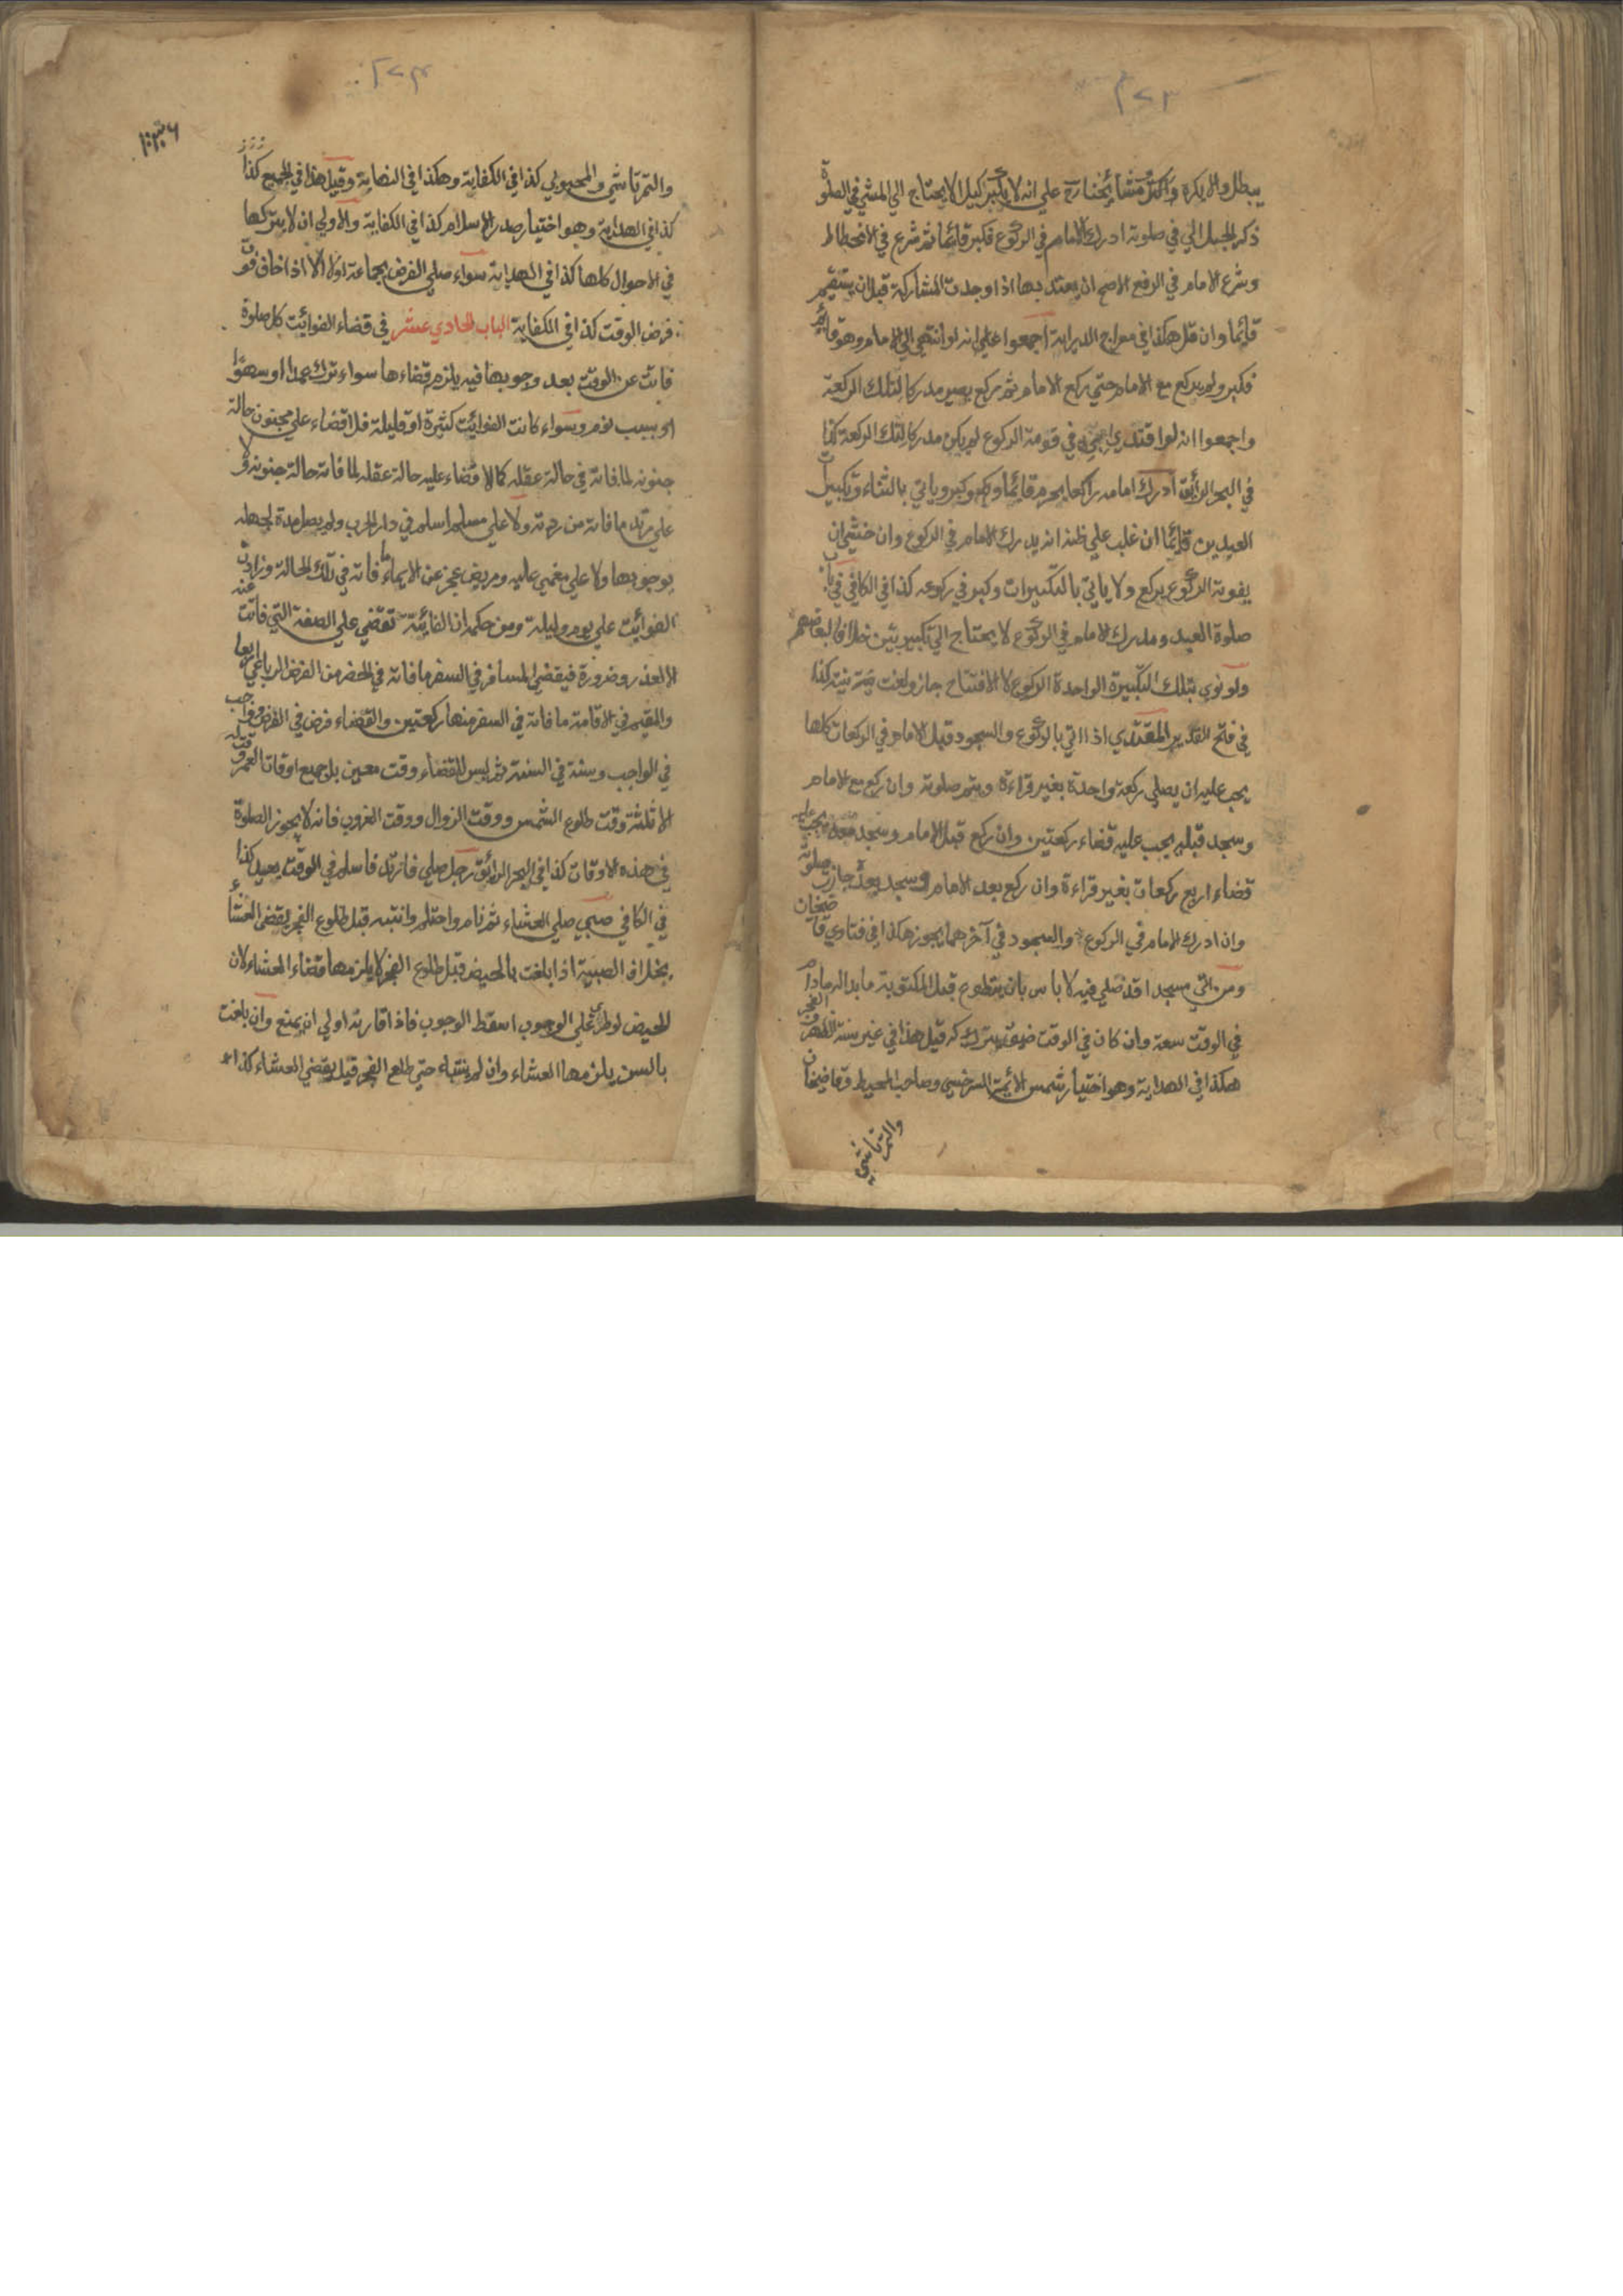 ٢٧٣
يبطل والا يكره واكثر مشائخنا رح على انه لا يكبر كيلا يحتاج الي المشي في الصلوة
ذكر الجلالي في صلوته ادرك الامام في الركوع فكبر قائما ثم شرع في الانحطاط
وشرع الامام في الرفع الاصح ان يعتد بها اذا وجدت المشاركة قبل ان يستقيم
قائما وان قل هكذا في معراج الدراية اجمعوا علي انه لو انتهي الي الامام وهو قائم
فكبر ولم يركع مع الامام حتي ركع الامام ثم ركع يصير مدركا لتلك الركعة
واجمعوا انه لو اقتدي به في قومة الركوع لم يكن مدركا لتلك الركعة كذا
في البحر الرائق ادرك امامه راكعا يحرم قائما وكبر وياتي بالثناء وتكبيرات
العيدين قائما ان غلب علي ظنه انه يدرك الامام في الركوع وان خشي ان
يفوته الركوع يركع ولا ياتي بالتكبيرات وكبر في ركوعه كذا في الكافي في باب
صلوة العيد ومدرك الامام في الركوع لا يحتاج الي تكبيرتين خلافا لبعضهم
ولو نوي بتلك التكبيرة الواحدة الركوع لا الافتتاح جاز ولغت نيته كذا
في فتح القدير المقتدي اذا اتي بالركوع والسجود قبل الامام في الركعات كلها
يجب عليه ان يصلي ركعة واحدة بغير قراءة ويتم صلوته وان ركع مع الامام
وسجد قبله يجب عليه قضاء ركعتين وان ركع قبل الامام وسجد معه يجب عليه
قضاء اربع ركعات بغير قراءة وان ركع بعد الامام وسجد بعده جازت صلوته
وان ادرك الامام في الركوع والسجود في آخرهما يجوز هكذا في فتاوي قاضيخان
ومن اتي مسجدا قد صلي فيه لا باس بان يتطوع قبل المكتوبة ما بدا له ما دام
في الوقت سعة وان كان في الوقت ضيق يتركه قيل هذا في غير سنة الظهر والفجر
هكذا في الهداية وهو اختيار شمس الائمة السرخسي وصاحب المحيط وقاضيخان
والتمرتاشي
٢٧٤
والتمرتاشي والمحبوبي كذا في الكفاية وهكذا في النهاية وقيل هذا في الجميع كذا
كذا في الهداية وهو اختيار صدر الاسلام كذا في الكفاية والاولي ان لا يتركها
في الاحوال كلها كذا في الهداية سواء صلي الفرض بجماعة او لا الا اذا خاف فوت
فرض الوقت كذا في الكفاية الباب الحادي عشر في قضاء الفوائت كل صلوة
فاتت عن الوقت بعد وجوبها فيه يلزم قضاءها سواء ترك عمدا او سهوا
او بسبب نوم وسواء كانت الفوائت كثيرة او قليلة فلا قضاء علي مجنون حالة
جنونه لما فاته في حالة عقله كما لا قضاء عليه حالة عقله لما فاته حالة جنونه ولا
علي مرتد ما فاته من ردته ولا علي مسلم اسلم في دار الحرب ولم يصل مدة لجهله
بوجوبها ولا علي مغمي عليه ومريض عجز عن الايماء ما فاته في تلك الحالة وزادت
الفوائت علي يوم وليلة ومن حكمه ان الفائتة تقضي علي الصفة التي فاتت عنه
الا لعذر وضرورة فيقضي المسافر في السفر ما فاته في الحضر من الفرض الرباعي اربعا
والمقيم في الاقامة ما فاته في السفر منها ركعتين والقضاء فرض في الفرض وواجب
في الواجب وسنة في السنة ثم ليس للقضاء وقت معين بل جميع اوقات العمر وقت له
الا ثلثة وقت طلوع الشمس ووقت الزوال ووقت الغروب فانه لا يجوز الصلوة
في هذه الاوقات كذا في البحر الرائق رجل صلي فارتد فاسلم في الوقت يعيد كذا
في الكافي صبي صلي العشاء ثم نام واحتلم وانتبه قبل طلوع الفجر يقضي العشاء
بخلاف الصبية اذا بلغت بالحيض قبل طلوع الفجر لا يلزمها قضاء العشاء لان
الحيض لو طرئ علي الوجوب اسقط الوجوب فاذا قارنه اولي ان يمنع وان بلغت
بالسن يلزمها العشاء وان لم ينتبه حتي طلع الفجر قيل يقضي العشاء كذا